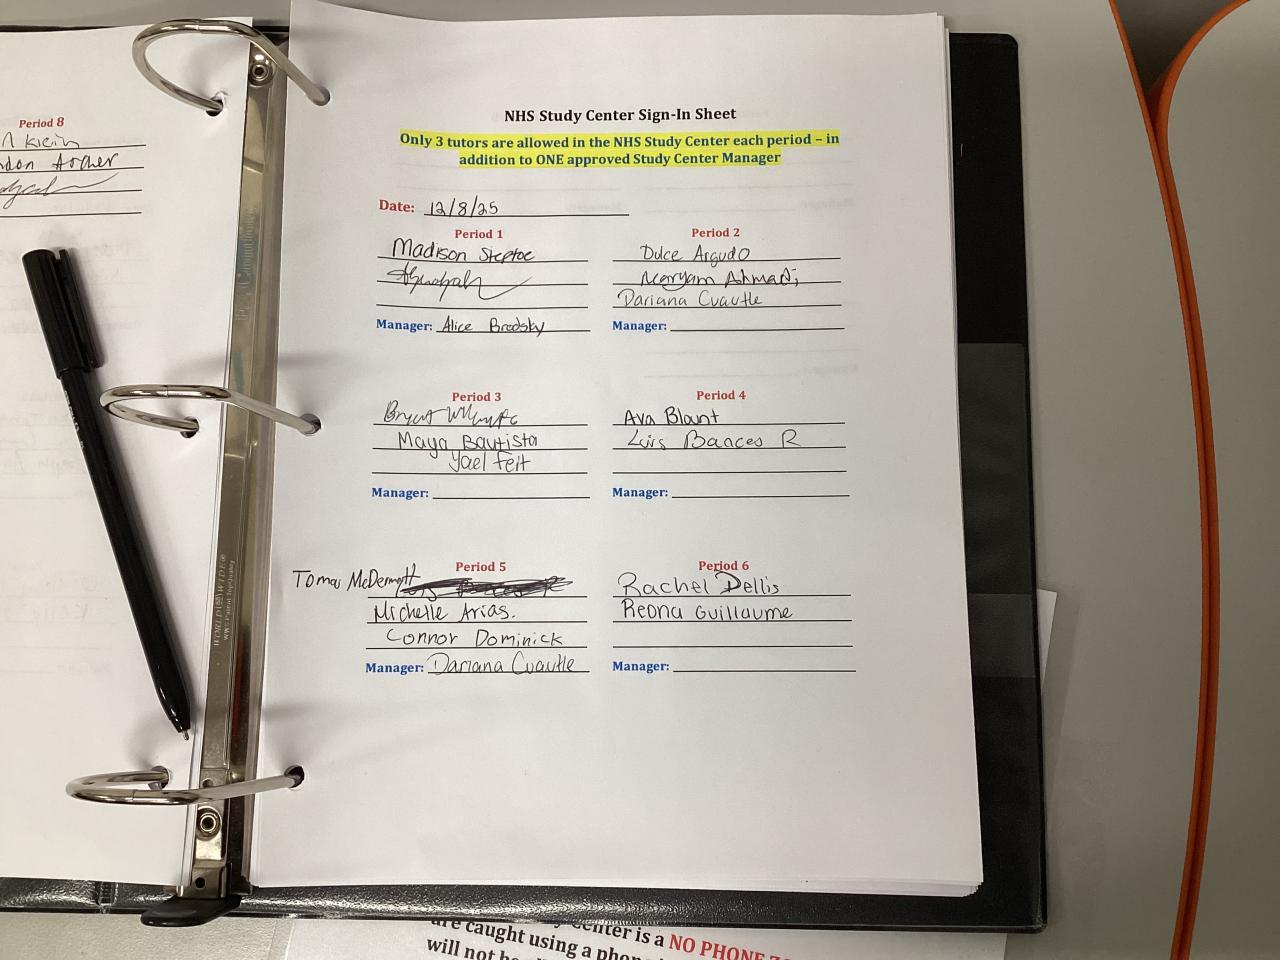 Period 8
Klein
don Archer
NHS Study Center Sign-In Sheet
Only 3 tutors are allowed in the NHS Study Center each period – in
addition to ONE approved Study Center Manager
Date: 12/8/25
Period 1
Madison Steptoe
Manager: Alice Brodsky
Period 2
Dulce Argudo
Maryam Ahmadi
Dariana Cuautle
Manager:
Period 3
Maya Bautista
Yael Feit
Manager:
Period 4
Ava Blount
Luis Bances R
Manager:
Period 5
Tomas McDermott
Michelle Arias.
Connor Dominick
Manager: Dariana Cuautle
Period 6
Rachel Dellis
Reona Guillaume
Manager:
WORLD WIDE
Center is a NO PHONE
are caught using a phone
will not be